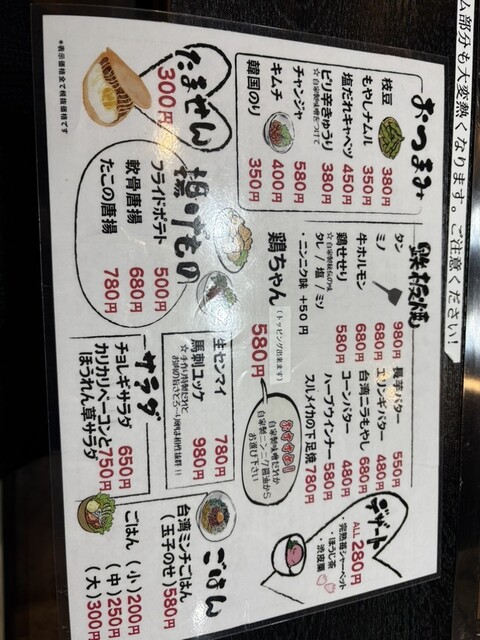 ム部分も大変熱くなります。ご注意ください!
おつまみ
枝豆 380円
もやしナムル 350円
塩だれキャベツ 450円
ピリ辛きゅうり 380円
☆自家製味噌をつけて
チャンジャ 580円
キムチ 400円
韓国のり 350円
たません
300円
*表示価格全て税抜価格です
揚げもの
フライドポテト 500円
軟骨唐揚 680円
たこの唐揚 780円
鉄板焼
タン 980円
ミノ 680円
牛ホルモン 680円
鶏せせり 580円
☆自家製味噌の味
タレ / 塩 / ミソ
・ニンニク味 +50円
鶏ちゃん
(トッピング出来ます)
580円
長芋バター 550円
エリンギバター 480円
台湾ニラもやし 680円
コーンバター 480円
ハーブウインナー 580円
スルメイカの下足焼 780円
おすすめ!
自家製味噌だれか
自家製ニンニク醤油から
お選び下さい
生センマイ 780円
馬刺ユッケ 980円
サラダ
チョレギサラダ 650円
カリカリベーコンと
ほうれん草サラダ 750円
デザート
ALL 280円
・完熟苺シャーベット
・ほうじ茶
・渋皮栗
ごはん
台湾ミンチごはん
(玉子のせ) 580円
ごはん (小) 200円
(中) 250円
(大) 300円